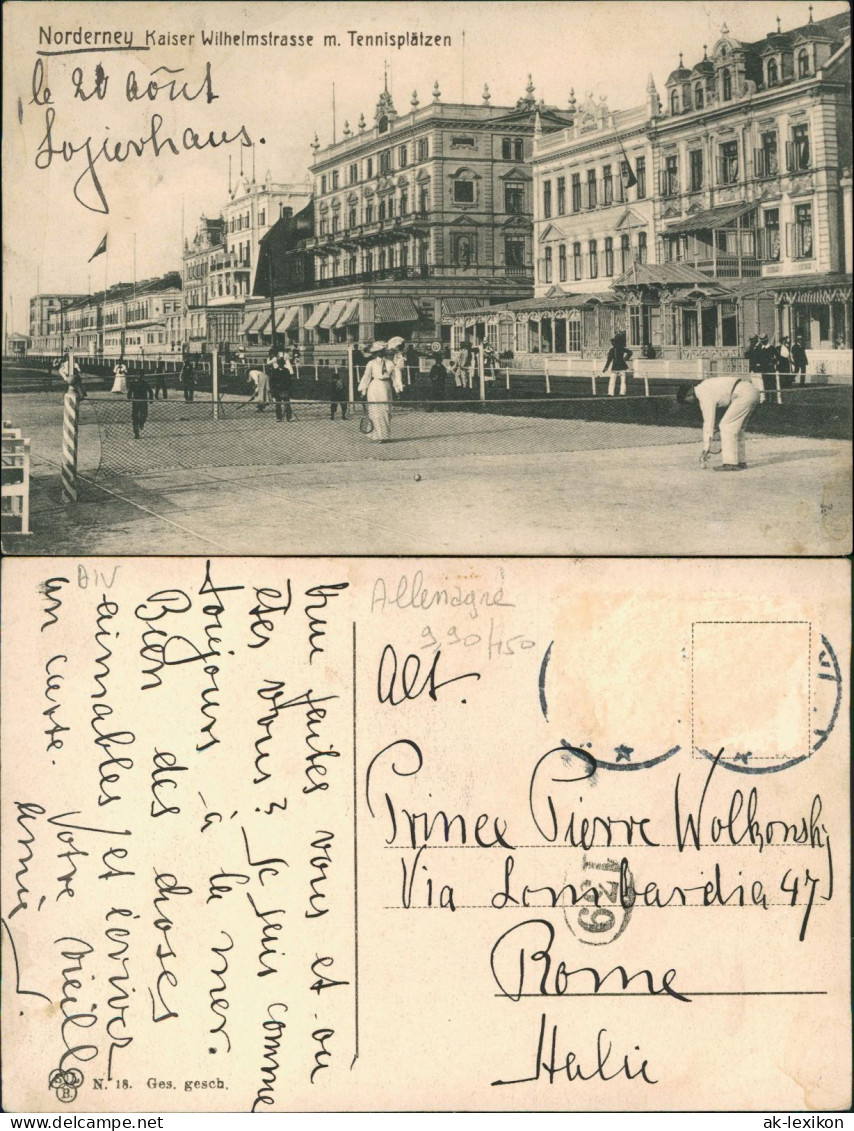 Norderney Kaiser Wilhelmstrasse m. Tennisplätzen
le 20 août
Logierhaus.
que faites vous et ou
êtes vous? Je suis comme
toujours à la mer.
Bien des choses
aimables et écrivez
un carte. Votre vieille
amie
Allemagne
9,90/150
Alt.
Prince Pierre Wolkonsky
Via Lombardia 47
Rome
Italie
139
N. 18. Ges. gesch.
ak-lexikon
Delcampe.net
ak-lexikon